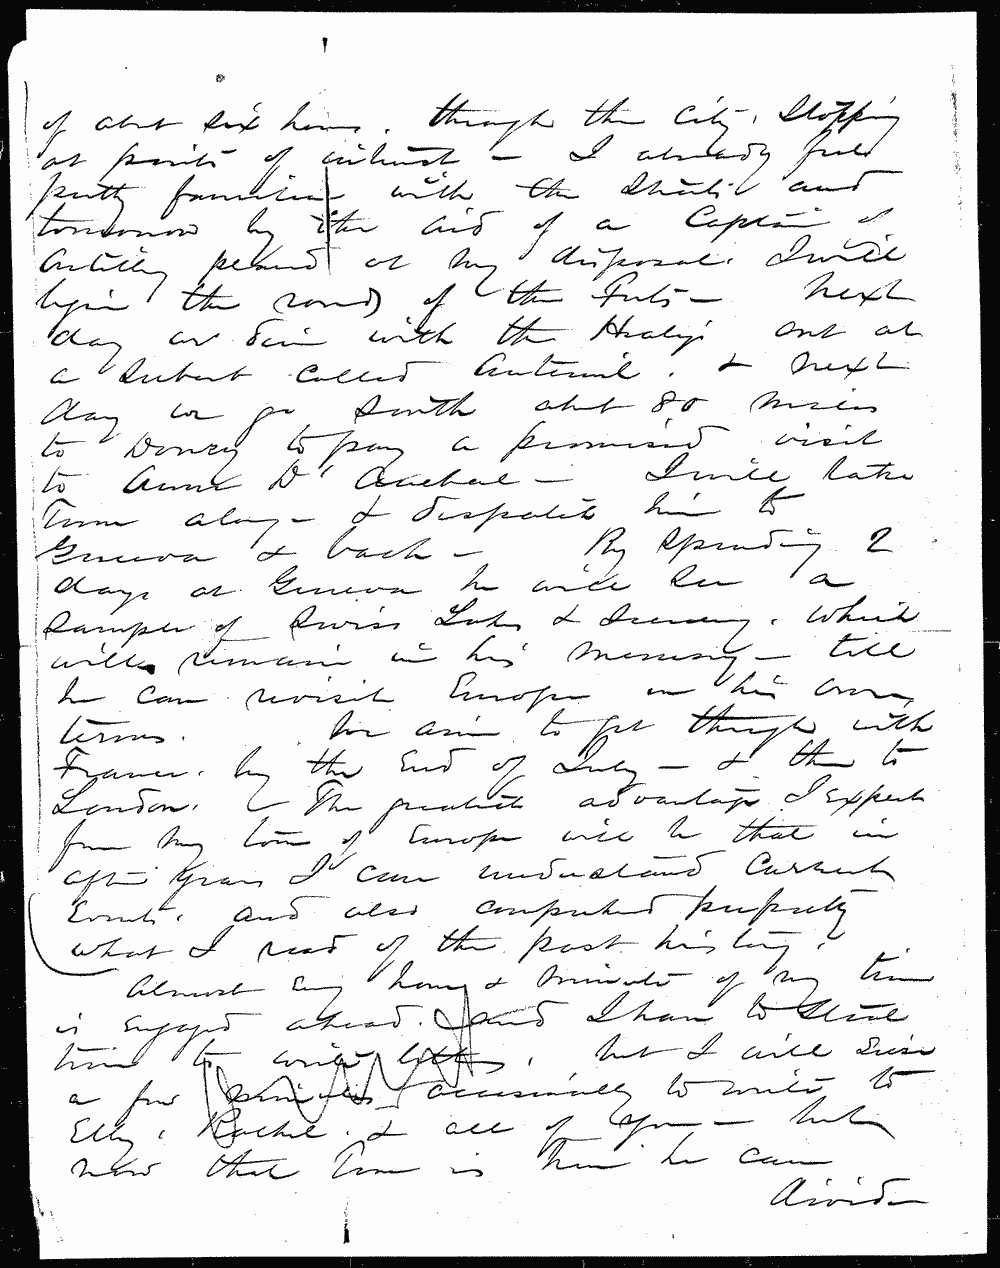 of about six hours, through the City, Stopping
at points of interest — I already feel
pretty familiar with the Streets and
tomorrow by the aid of a Captain of
Artillery placed at my disposal. I will
begin the round of the Forts — Next
day we dine with the Healys out at
a Suburb called Auteuil, & next
day we go South about 80 miles
to Donzy to pay a promised visit
to Anne D'
I will take
Tom along — & despatch him to
Geneva & back — By spending 2
days at Geneva he will see a
sample of Swiss Lakes & Scenery, which
will remain in his memory — till
he can revisit Europe on his own
terms. We aim to get through with
France, by the End of July — & then to
London. The greatest advantage I Expect
from my tour of Europe will be that in
after years I can understand Current
Events, and also comprehend perfectly
what I read of the past history.
Almost Every hour & minute of my time
is Engaged ahead. and I have to Steal
time to write letters, but I will seize
a few minutes occasionally to write to
Elly, Rachel, & all of you — but
now that Tom is here he can
divide